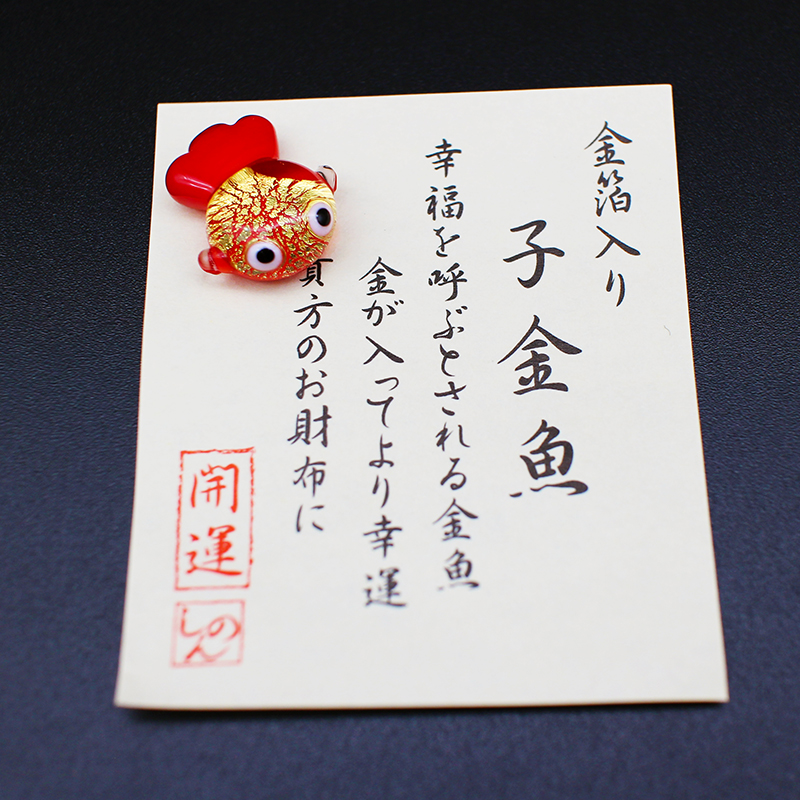 金箔入り
子金魚
幸福を呼ぶとされる金魚
金が入ってより幸運
貴方のお財布に
開運
しのん